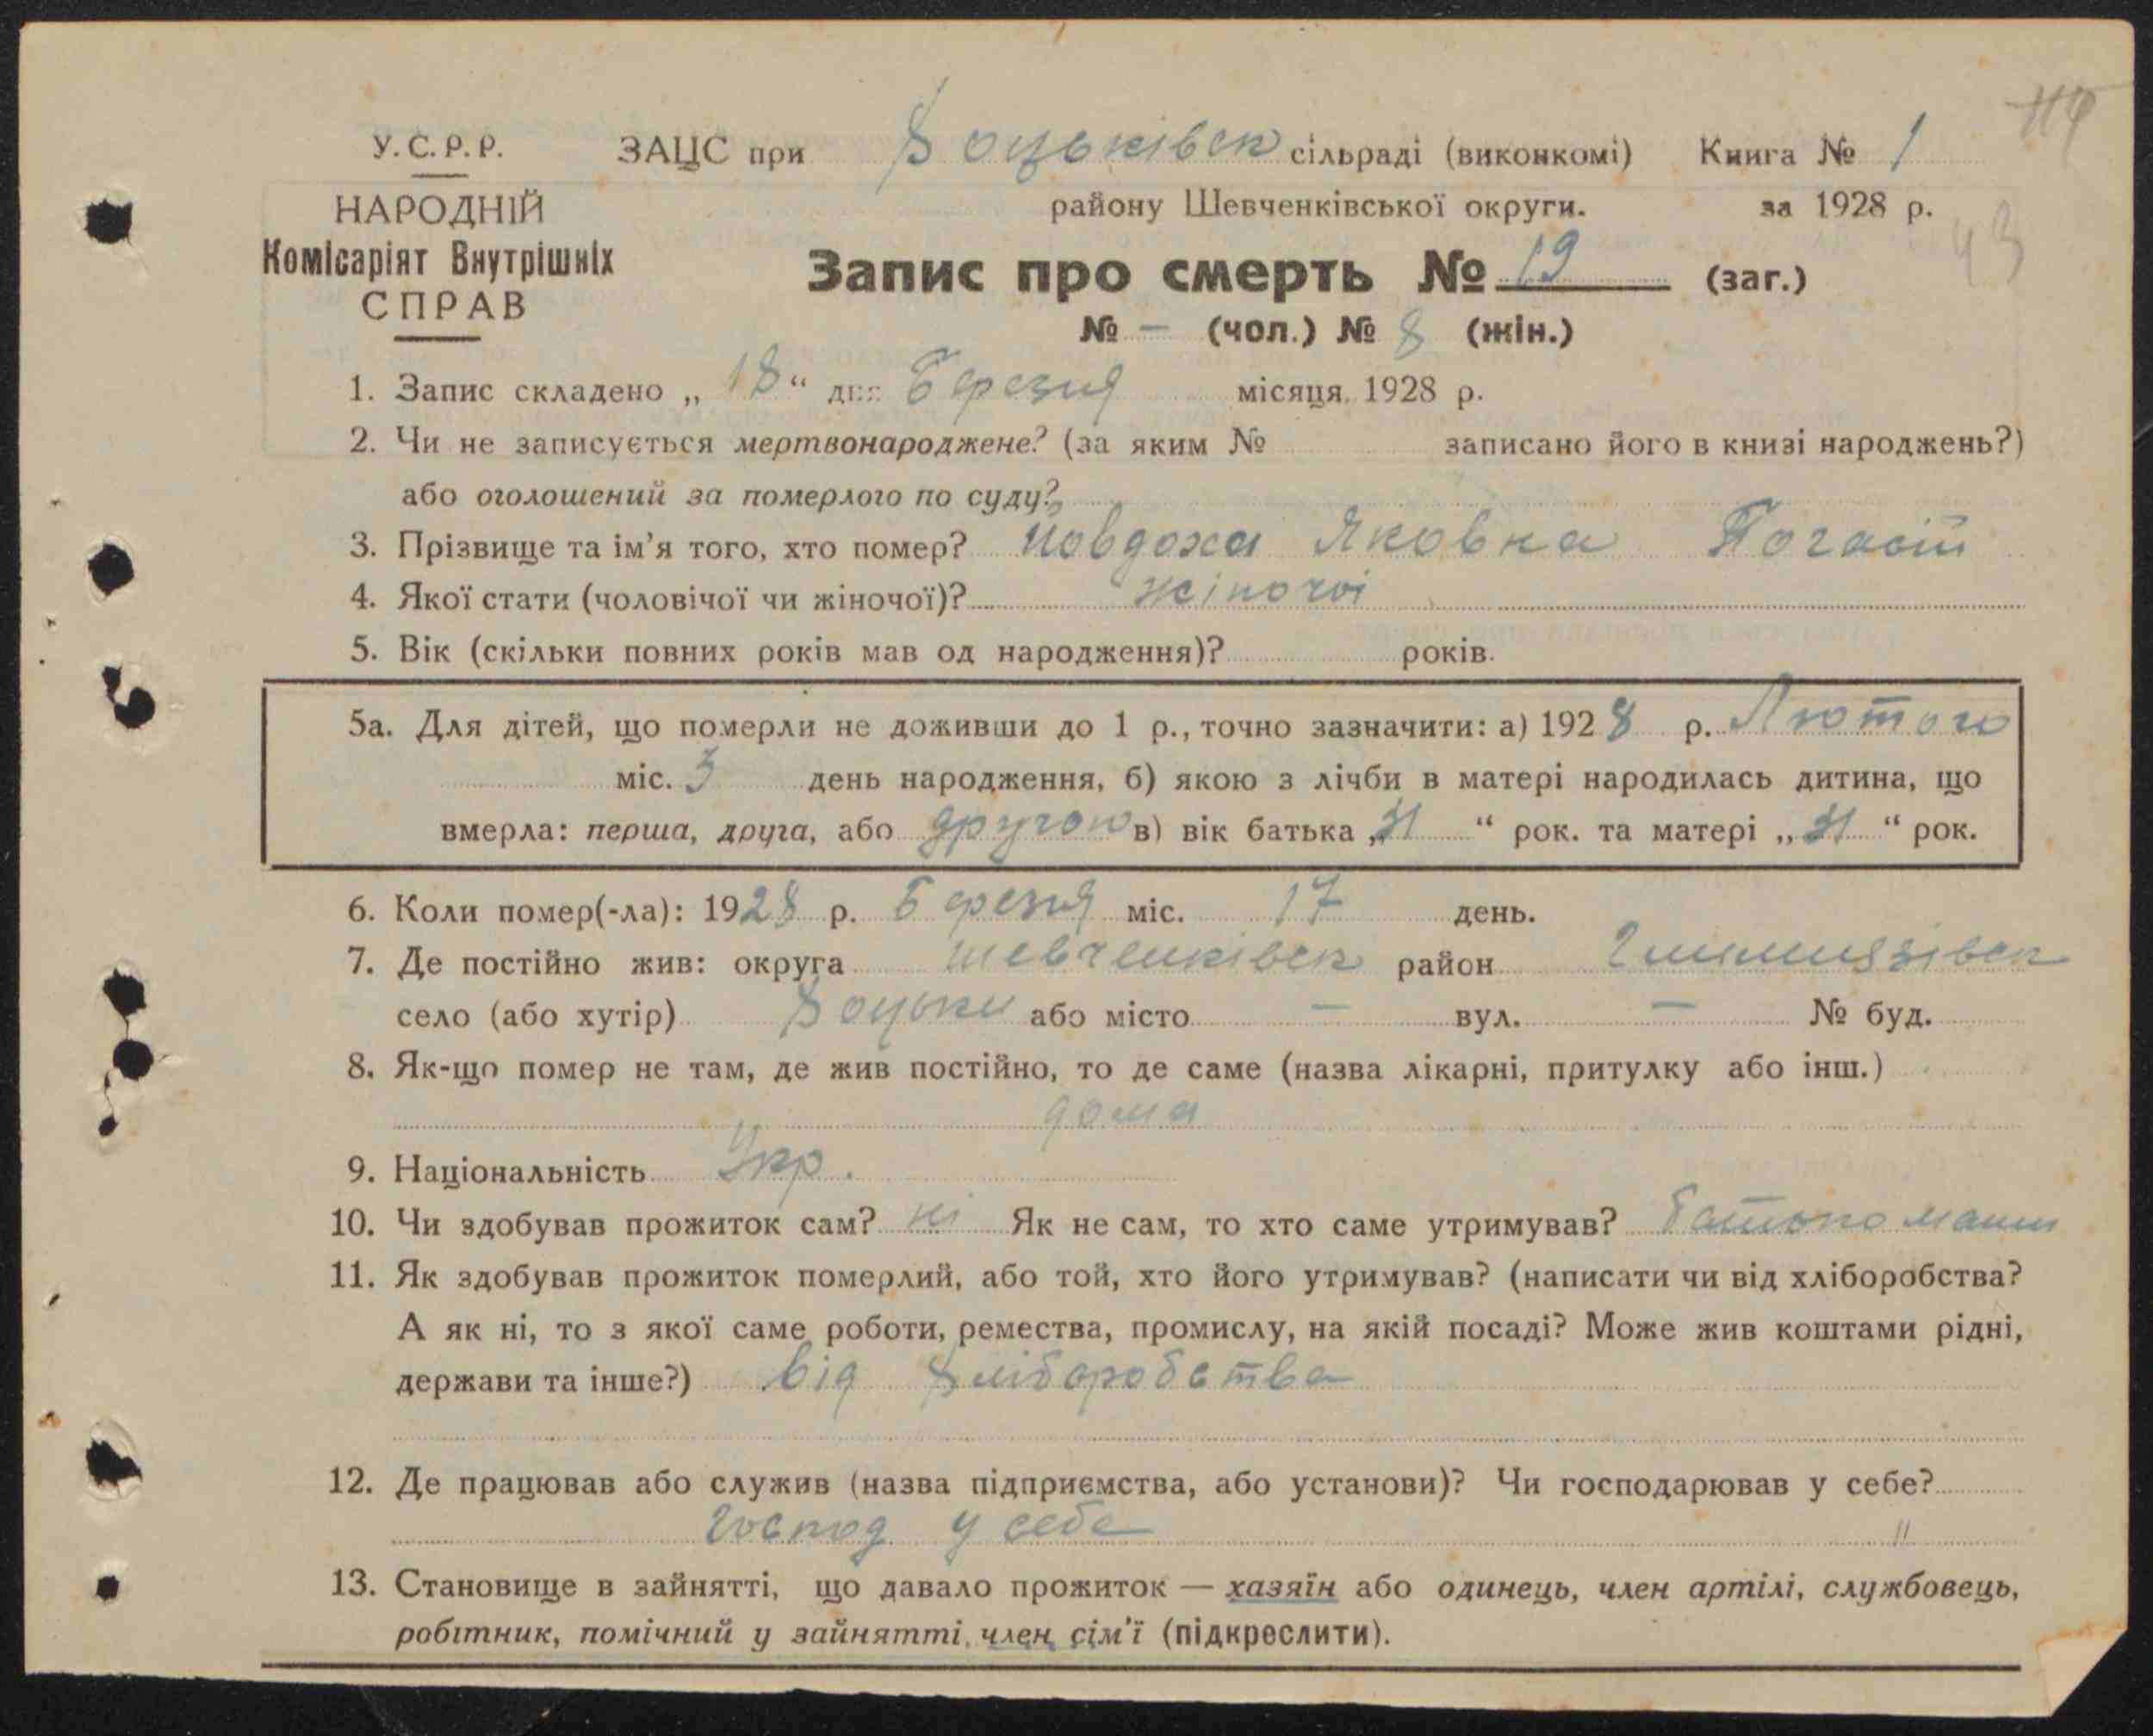 114
У.С.Р.Р. ЗАЦС при Хоцьківськ сільраді (виконкомі) Книга № 1
НАРОДНІЙ району Шевченківської округи. за 1928 р.
Комісаріят Внутрішніх
СПРАВ
43
Запис про смерть № 19 (заг.)
№ — (чол.) № 8 (жін.)
1. Запис складено „18“ дня Березня місяця 1928 р.
2. Чи не записується мертвонароджене? (за яким № записано його в книзі народжень?)
або оголошений за померлого по суду?
3. Прізвище та ім’я того, хто помер? Йовдоха Яковна
4. Якої стати (чоловічої чи жіночої)? жіночої
5. Вік (скільки повних років мав од народження)? років.
5а. Для дітей, що померли не доживши до 1 р., точно зазначити: а) 1928 р. Лютого
міс. 3 день народження, б) якою з лічби в матері народилась дитина, що
вмерла: перша, друга, або другою в) вік батька „31“ рок. та матері „31“ рок.
6. Коли помер(-ла): 1928 р. Березня міс. 17 день.
7. Де постійно жив: округа Шевченківськ район Гельмязівськ
село (або хутір) Хоцьки або місто — вул. — № буд.
8. Як-що помер не там, де жив постійно, то де саме (назва лікарні, притулку або інш.)
дома
9. Національність Укр.
10. Чи здобував прожиток сам? ні Як не сам, то хто саме утримував? батько мати
11. Як здобував прожиток померлий, або той, хто його утримував? (написати чи від хліборобства?
А як ні, то з якої саме роботи, ремества, промислу, на якій посаді? Може жив коштами рідні,
держави та інше?) від хліборобства
12. Де працював або служив (назва підприємства, або установи)? Чи господарював у себе?
господ у себе "
13. Становище в зайнятті, що давало прожиток — хазяїн або одинець, член артілі, службовець,
робітник, помічний у зайнятті, член сім’ї (підкреслити).